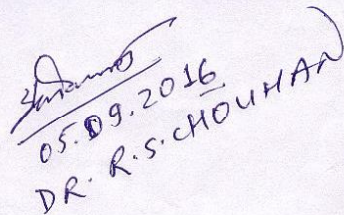 05.09.2016
DR. R.S. CHOUHAN